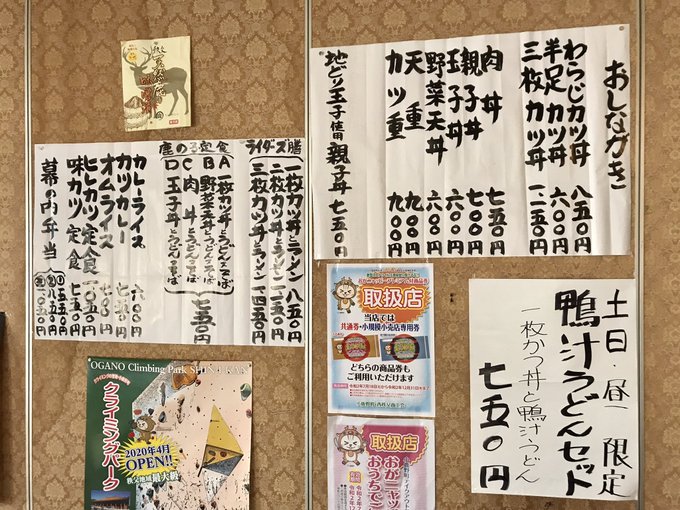 おしながき
わらじカツ丼 八五〇円
半足カツ丼 六〇〇円
三枚カツ丼 一一五〇円
肉丼 七五〇円
親子丼 七〇〇円
玉子丼 六〇〇円
野菜天丼 六〇〇円
天重 九〇〇円
カツ重 九〇〇円
地どり玉子使用親子丼 七五〇円
ライダーズ膳
一枚カツ丼とラーメン 八五〇円
二枚カツ丼とラーメン 一一五〇円
三枚カツ丼とラーメン 一四五〇円
鹿の子定食
A 一枚カツ丼とうどん又そば
B 野菜天丼とうどん又そば
C 肉丼とうどん又そば
D 玉子丼とうどん又そば
七五〇円
カレーライス 六〇〇円
カツカレー 七五〇円
オムライス 七〇〇円
ヒレカツ定食 一〇五〇円
味カツ定食 七五〇円
幕の内弁当
土日・昼 限定
鴨汁うどんセット
一枚かつ丼と鴨汁うどん
七五〇円
取扱店
当店では
共通券・小規模小売店専用券
どちらの商品券も
ご利用いただけます
取扱店
おがニャッ
おうちでご
OGANO Climbing Park SHIN
クライミングパーク
2020年4月
OPEN!!
秩父地域最大級